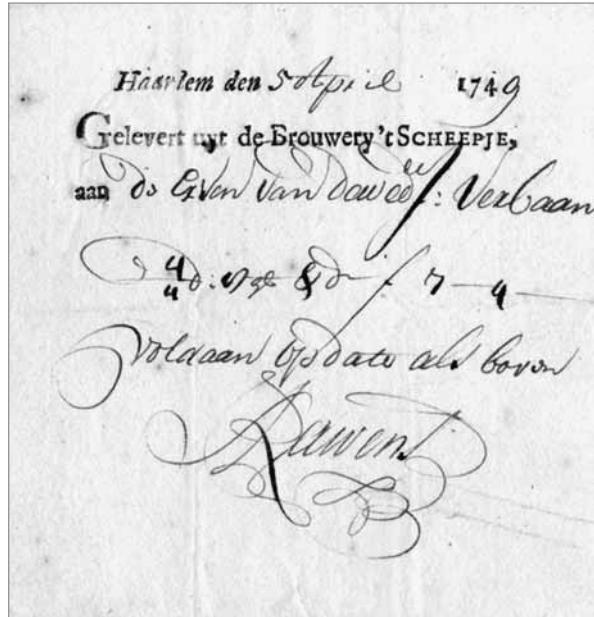 Haarlem den 5 April 1749
Gelevert uyt de Brouwery 't SCHEEPJE,
aan de Erven van dewed: Verbaan
7 — 4
voldaan op dato als boven